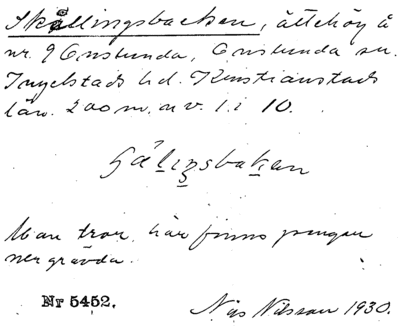 Skållingsbacken, ättehög å
nr. 9 Onslunda, Onslunda sn.
Ingelstads hd. Kristianstads
län. 200 m. n v. 1. i 10.
Man tror här finns pengar
nergrävda.
Nr 5452. Nils Nilsson 1930.